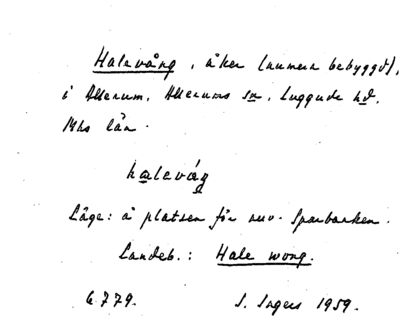 Halevång, åker (numera bebyggd),
i Allerum, Allerums sn, Luggude hd,
Mhs län.
halevåg
Läge: å platsen för nuv. Sparbanken.
Landeb.: Hale wong.
6.779. S. Ingers 1959.